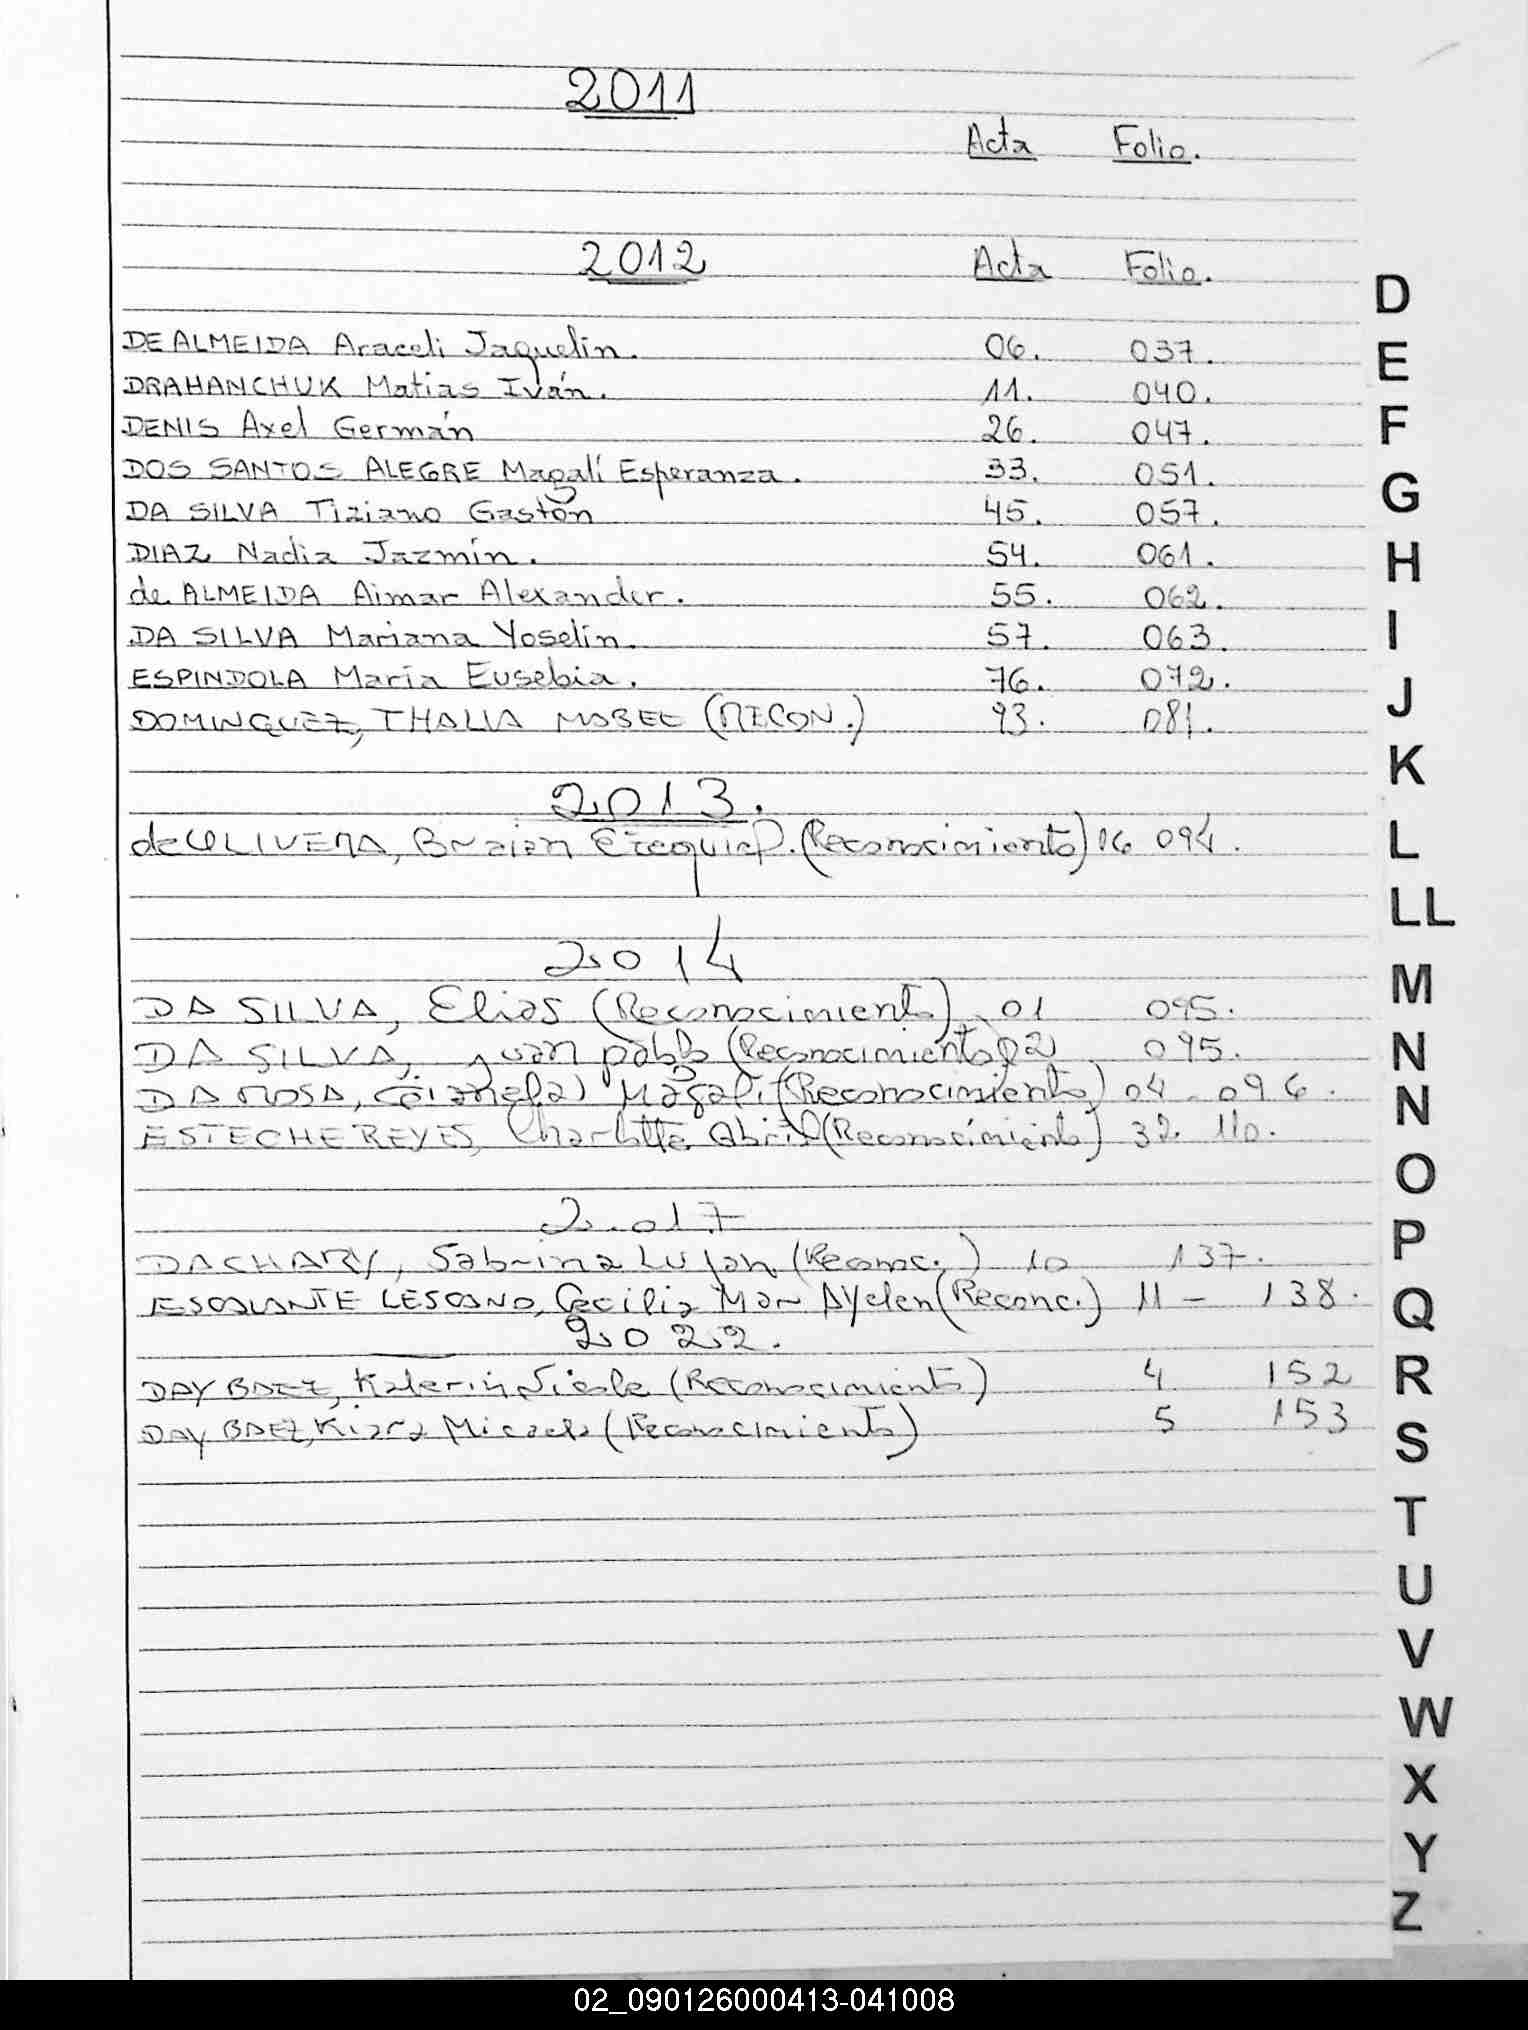 2011
Acta Folio.
2012 Acta Folio.
DE ALMEIDA Araceli Jaquelin. 06. 037.
DRAHANCHUK Matias Iván. 11. 040.
DENIS Axel Germán 26. 047.
DOS SANTOS ALEGRE Magalí Esperanza. 33. 051.
DA SILVA Tiziano Gastón 45. 057.
DIAZ Nadia Jazmín. 54. 061.
de ALMEIDA Aimar Alexander. 55. 062.
DA SILVA Mariana Yoselin. 57. 063.
ESPINDOLA María Eusebia. 76. 072.
DOMINGUEZ, THALIA MABEL (RECON.) 93. 081.
2013.
de OLIVERA, Braian Ezequiel. (Reconocimiento) 06 094.
2014
DA SILVA, Elias (Reconocimiento) 01 095.
DA SILVA, Juan pablo (Reconocimiento) 02 095.
DA ROSA, Gianella Magali (Reconocimiento) 04 096.
ESTECHE REYES, Charlotte Abril (Reconocimiento) 32. 110.
2.017
DACHARY, Sabrina Lujan (Reconoc.) 10 137.
ESCALANTE LESCANO, Cecilia Mar Ayelen (Reconc.) 11 - 138.
2022.
DAY BAEZ, Katerin Nicole (Reconocimiento) 4 152
DAY BAEZ, Kiara Micaela (Reconocimiento) 5 153
D
E
F
G
H
I
J
K
L
LL
M
N
N
O
P
Q
R
S
T
U
V
W
X
Y
Z
02_090126000413-041008